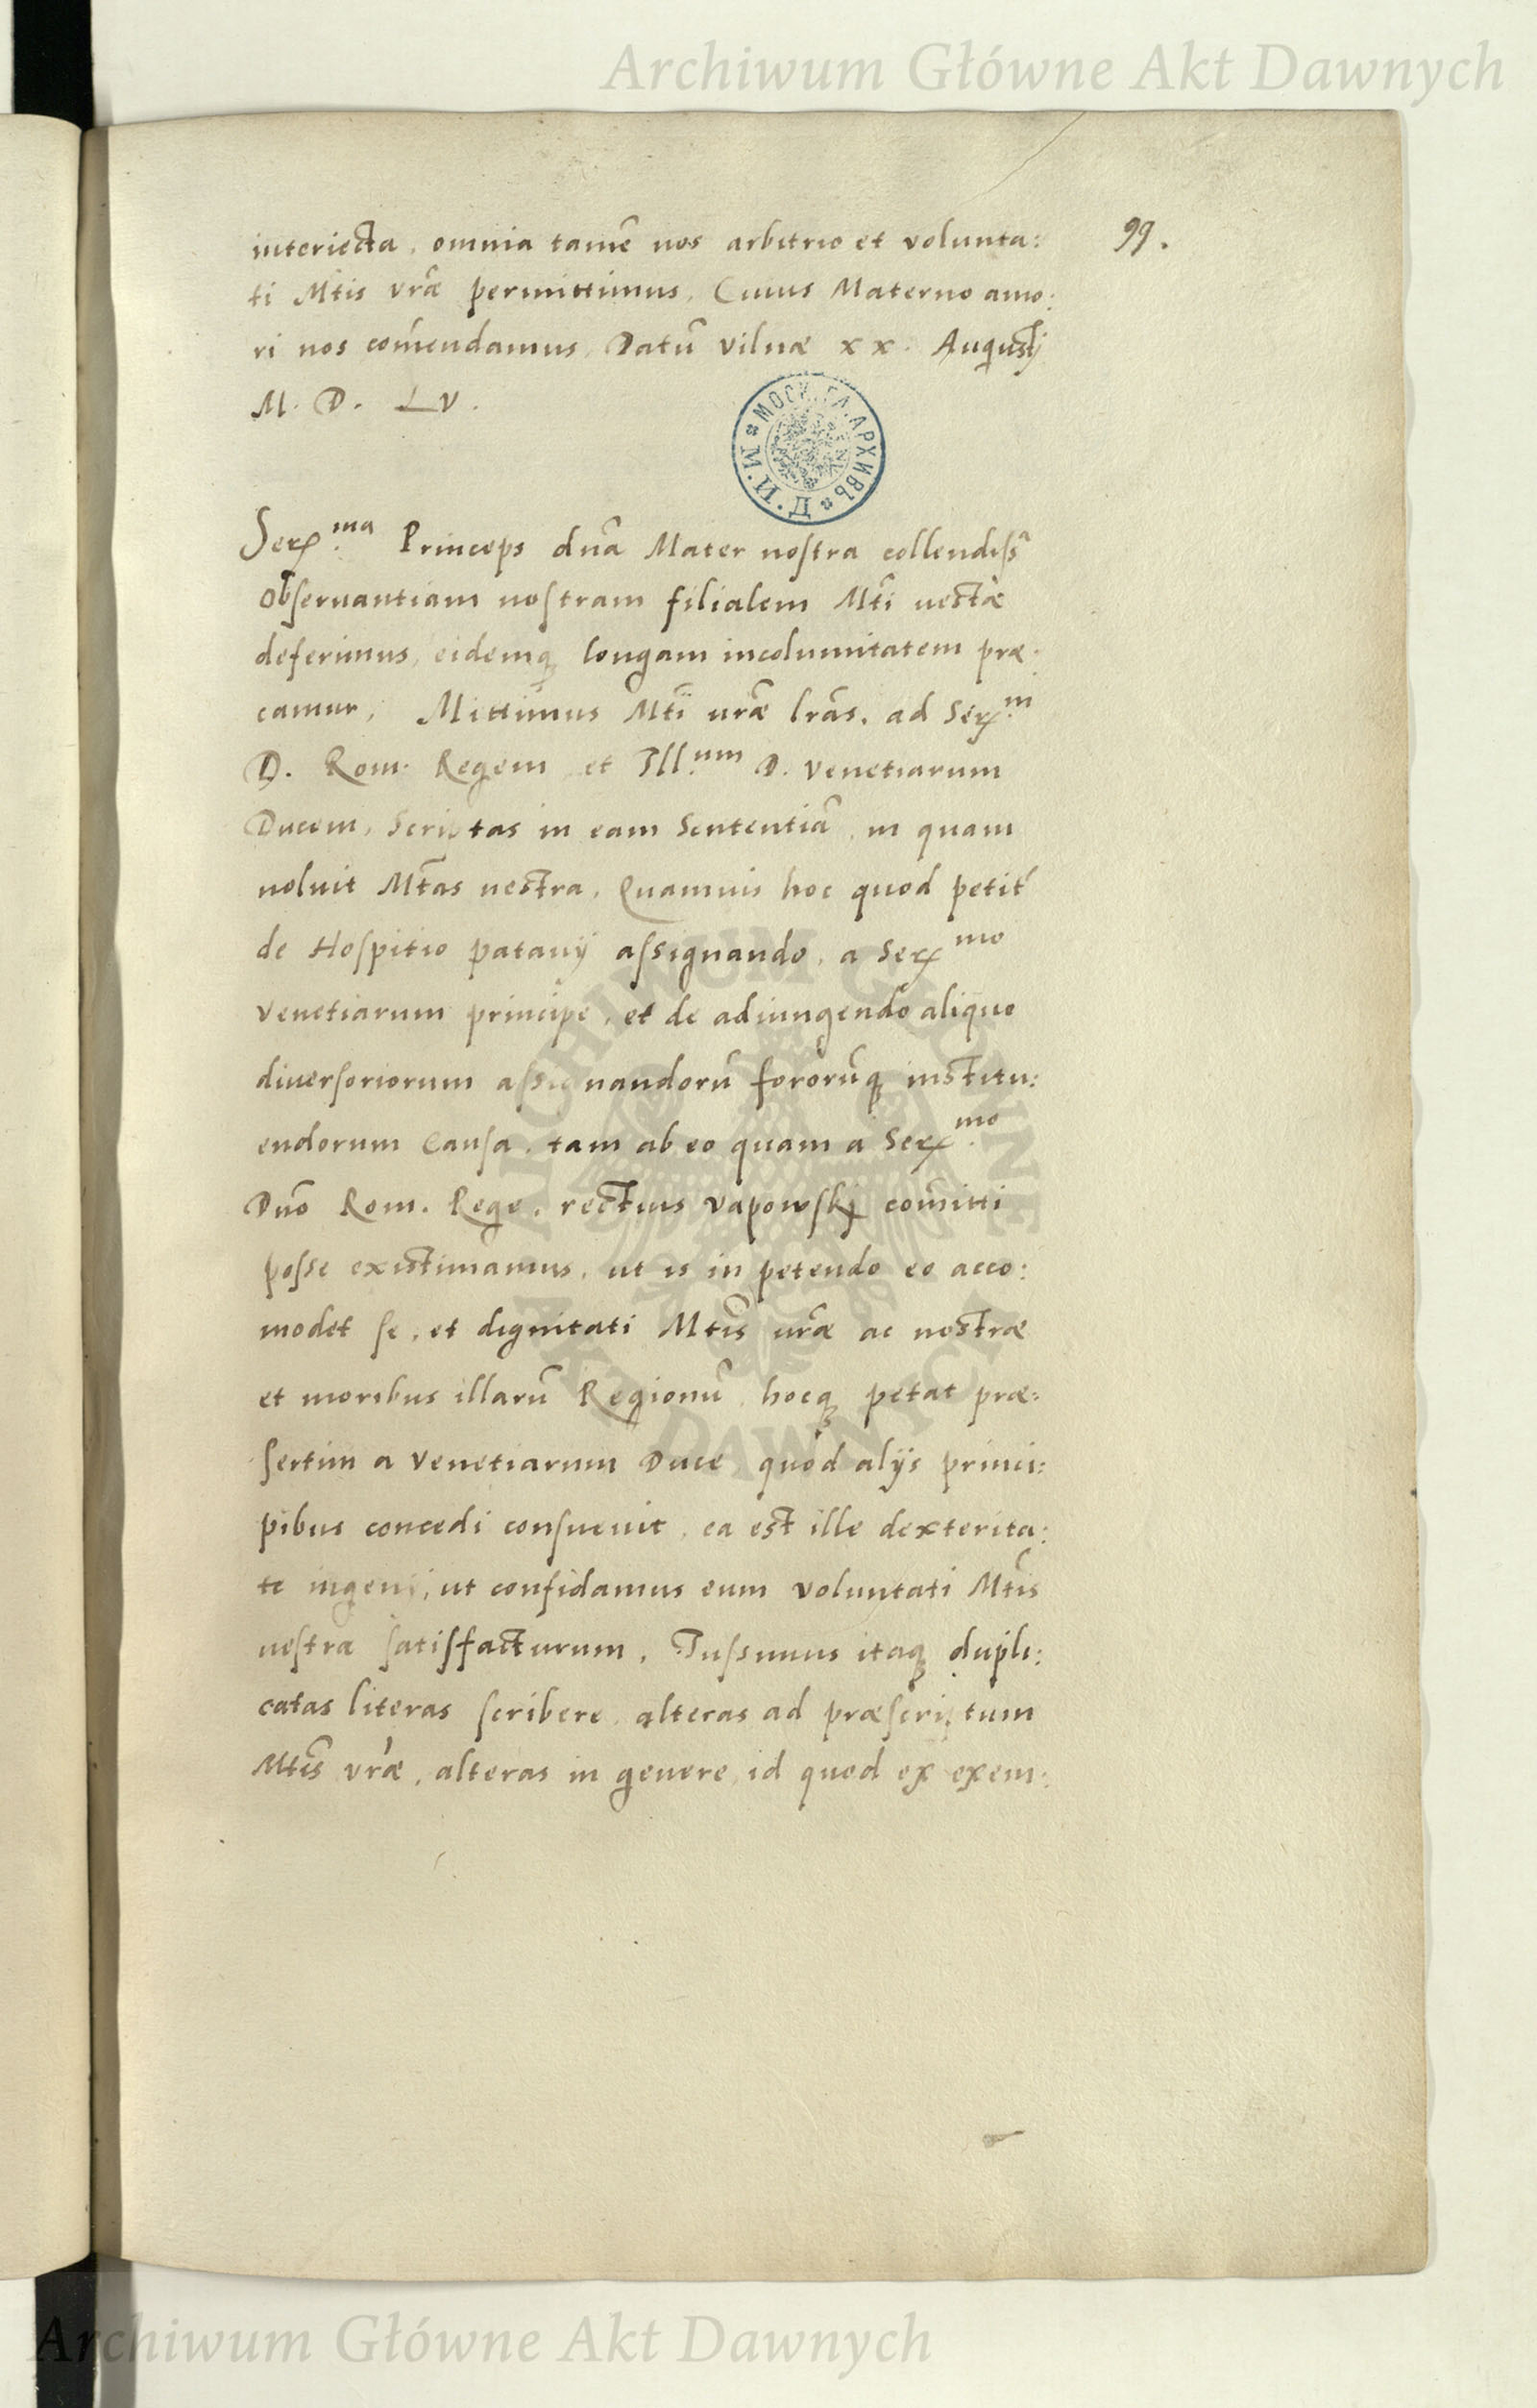 Archiwum Główne Akt Dawnych
99.
interiecta, omnia tamē nos arbitrio et volunta:
ti Mtis vræ permittimus, Cuius Materno amo:
ri nos comendamus, Datū Vilnæ xx. Augustj
M. D. LV.
МОСК. ГЛ. АРХИВЪ М. И. Д.
Ser.ma Princeps dna Mater nostra collendiss
Obseruantiam nostram filialem Mti vestræ
deferimus, eidemq longam incolumitatem præ:
camur, Mittimus Mti uræ lras, ad Ser.m
D. Rom. Regem et Ill.um D. Venetiarum
Ducem, Scriptas in eam Sententiā, in quam
uoluit Mtas uestra, Quamuis hoc quod petit
de Hospitio patauij assignando, a Ser.mo
Venetiarum principe, et de adiungendo aliquo
diuersoriorum assignandorū fororūq institu:
endorum Causa, tam ab eo quam a Ser.mo
Dno Rom. Rege, rectius Vapowskj comitti
posse existimamus, ut is in petendo eo acco:
modet se, et dignitati Mtis uræ ac nostræ
et moribus illarū Regionū, hocq petat præ:
sertim a Venetiarum Duce, quod alijs princi:
pibus concedi consueuit, ea est ille dexterita:
te ingenij, ut confidamus eum voluntati Mtis
uestræ satisfacturum, Iussimus itaq dupli:
catas literas scribere, alteras ad præscriptum
Mtis vræ, alteras in genere, id quod ex exem:
ARCHIWUM GŁÓWNE AKT DAWNYCH
Archiwum Główne Akt Dawnych